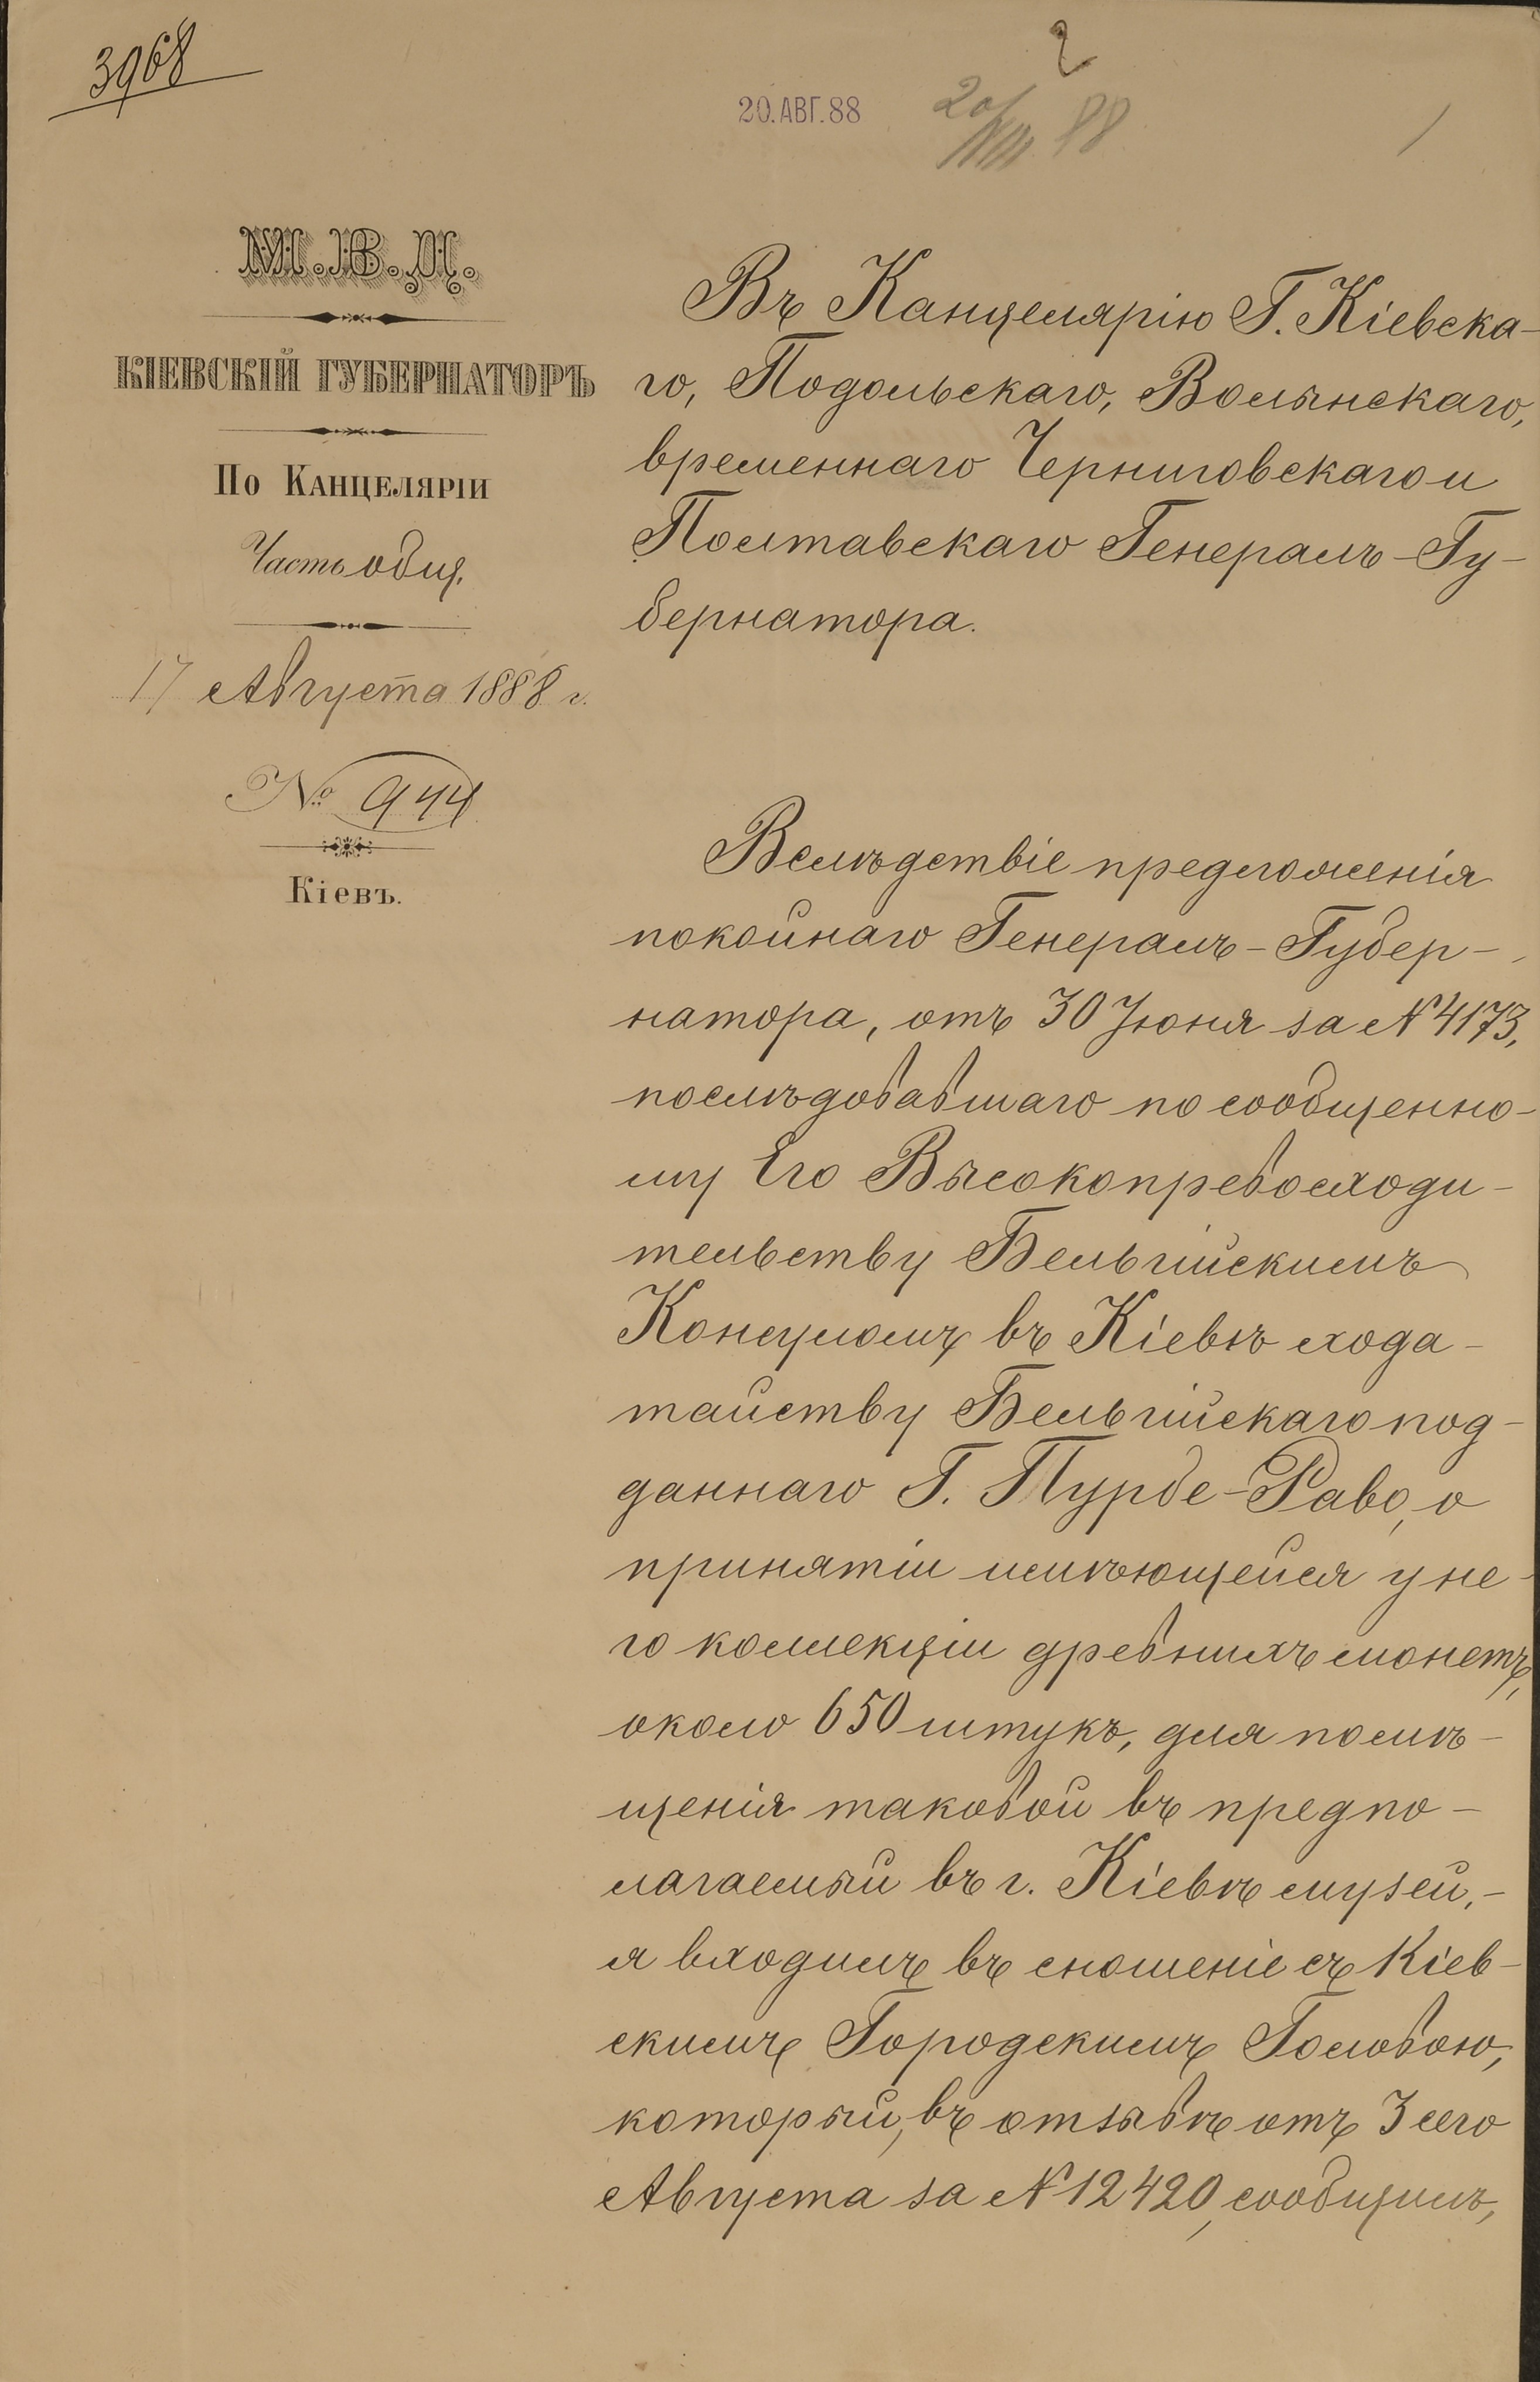 3968
2
20.АВГ.88
20/VIII 88
М.В.Д.
КІЕВСКІЙ ГУБЕРНАТОРЪ
По Канцеляріи
Часть общ.
17 Августа 1888 г.
№ 944
Кіевъ.
Въ Канцелярію Г. Кіевска-
го, Подольскаго, Волынскаго,
временнаго Черниговскаго и
Полтавскаго Генералъ-Гу-
бернатора.
Вслѣдствіе предложенія
покойнаго Генералъ-Губер-
натора, отъ 30 Іюня за № 4173,
послѣдовавшаго по сообщенно-
му Его Высокопревосходи-
тельству Бельгійскимъ
Консуломъ въ Кіевѣ хода-
тайству Бельгійскаго под-
даннаго Г. Пурбе-Раво, о
принятіи имѣющейся у не-
го коллекціи древнихъ монетъ,
около 650 штукъ, для помѣ-
щенія таковой въ предпо-
лагаемый въ г. Кіевѣ музей,-
я входилъ въ сношеніе съ Кіев-
скимъ Городскимъ Головою,
который, въ отзывѣ отъ 3 сего
Августа за № 12420, сообщилъ,